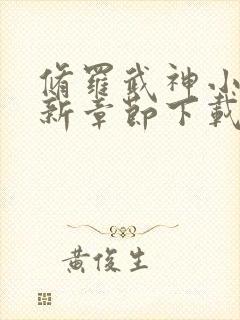 脩羅武神小
新章節下載
黃俊生